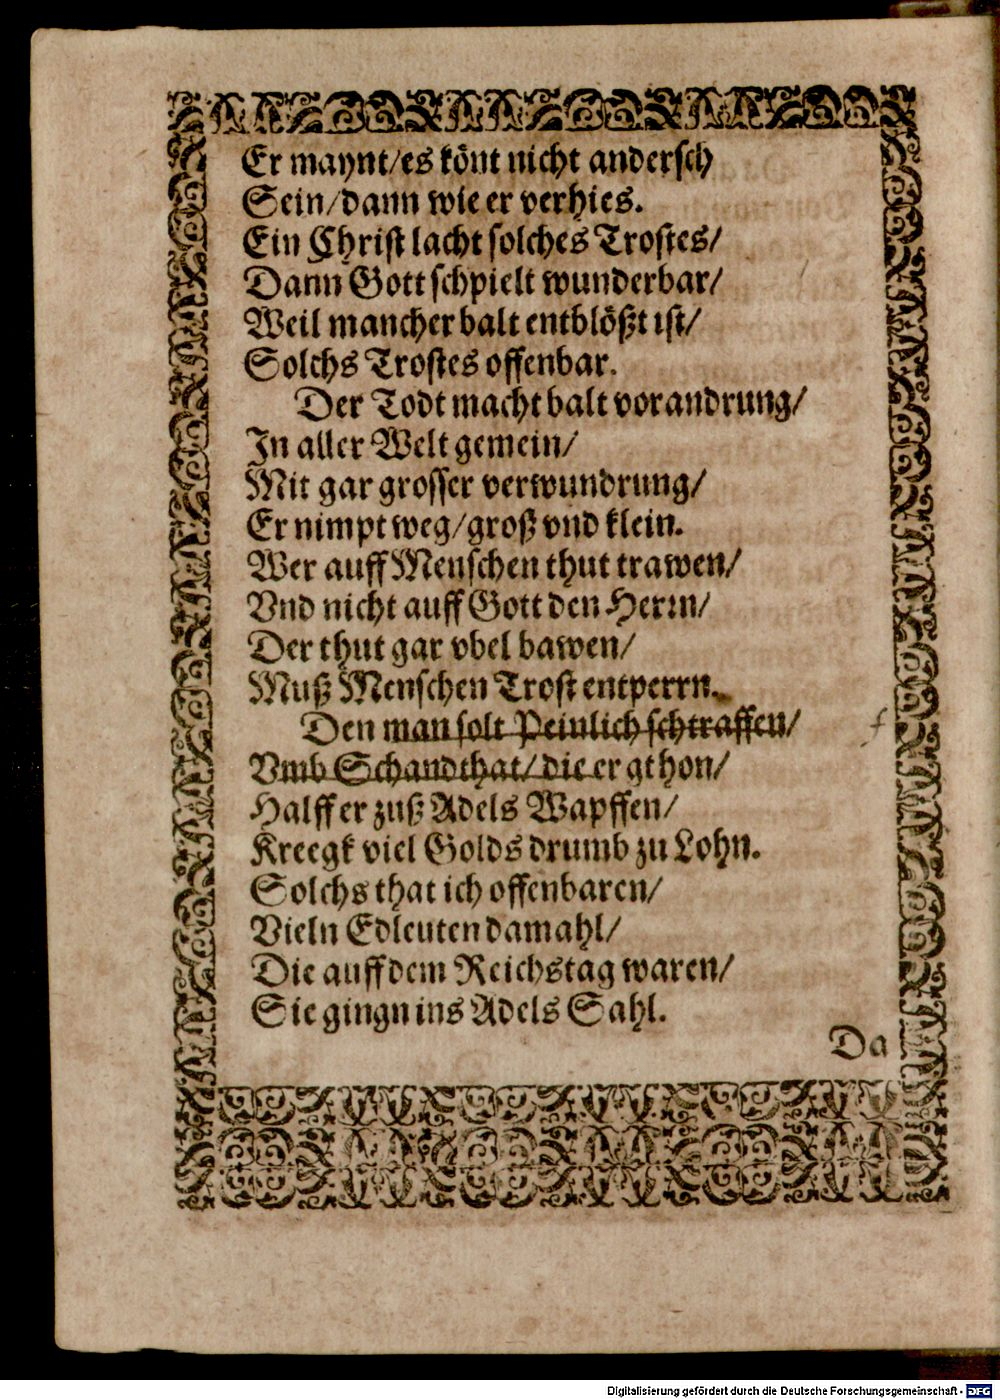 Er maynt/es könt nicht andersch
Sein/dann wie er verhies.
Ein Christ lacht solches Trostes/
Dann Gott schpielt wunderbar/
Weil mancher balt entblößt ist/
Solchs Trostes offenbar.
Der Todt macht balt vorandrung/
In aller Welt gemein/
Mit gar grosser verwundrung/
Er nimpt weg/groß vnd klein.
Wer auff Menschen thut trawen/
Vnd nicht auff Gott den Herrn/
Der thut gar vbel bawen/
Muß Menschen Trost entperrn.
Den man solt Peinlich schtraffen/
Vmb Schandthat/die er gthon/
Halff er zuß Adels Wapffen/
Kreegk viel Golds drumb zu Lohn.
Solchs that ich offenbaren/
Vieln Edleuten damahl/
Die auff dem Reichstag waren/
Sie gingn ins Adels Sahl.
Da
Digitalisierung gefördert durch die Deutsche Forschungsgemeinschaft - DFG